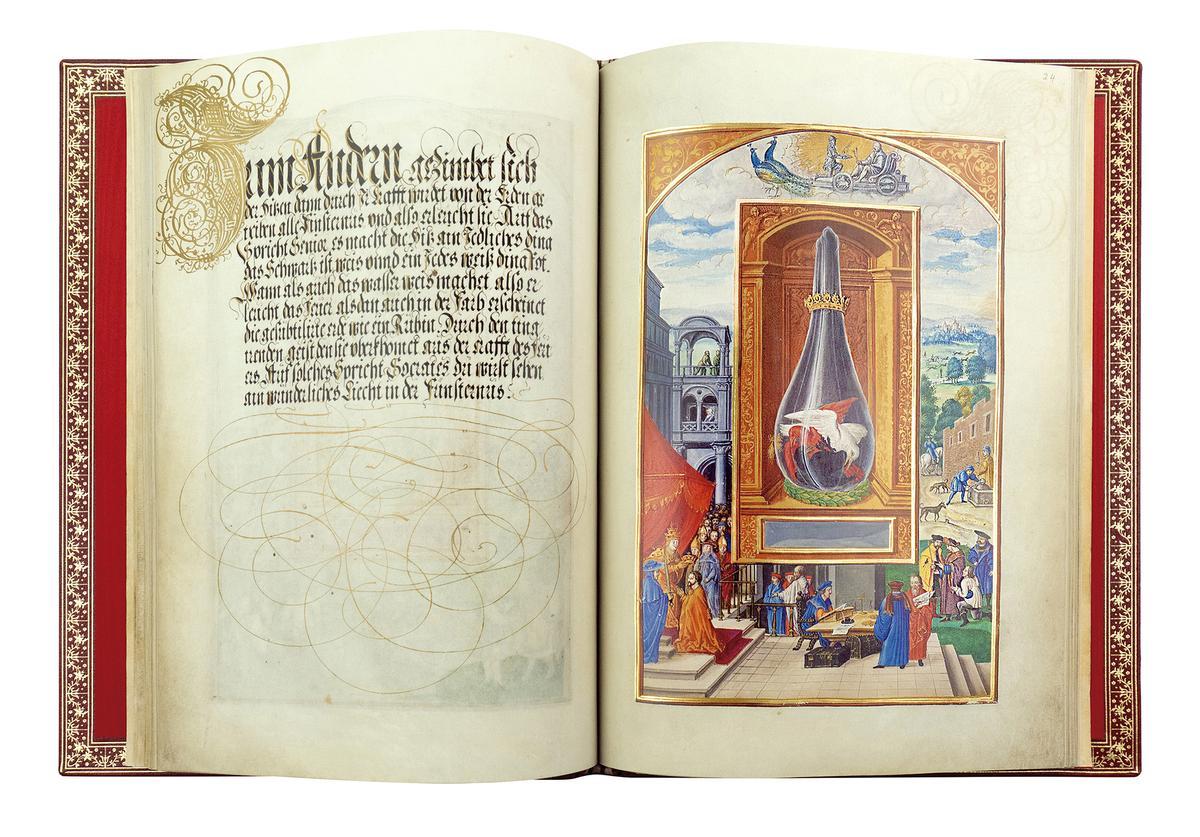 Zum Andern getzimbet sich
der Hitzen dann durch Ir Krafft wirdet von der Erden ver
triben alle Finsternus vnd also erleucht sie. Auf das
Spricht Senior, es macht die Hitz ain Jedlichs ding
das Schwartz ist weis vnnd ein Jedes weis ding Rot.
Wann als auch das wasser weis machet also er
leucht das Feuer alsdan auch in der Farb erscheinet
die gesubtilirte erd wie ein Rubin Durch den ting
irenden geist den sie vberkhomet aus der Krafft des Feu
ers Auf solches Spricht Socrates Du wirst sehen
ain wunderliches Liecht in der Finsternus.
24